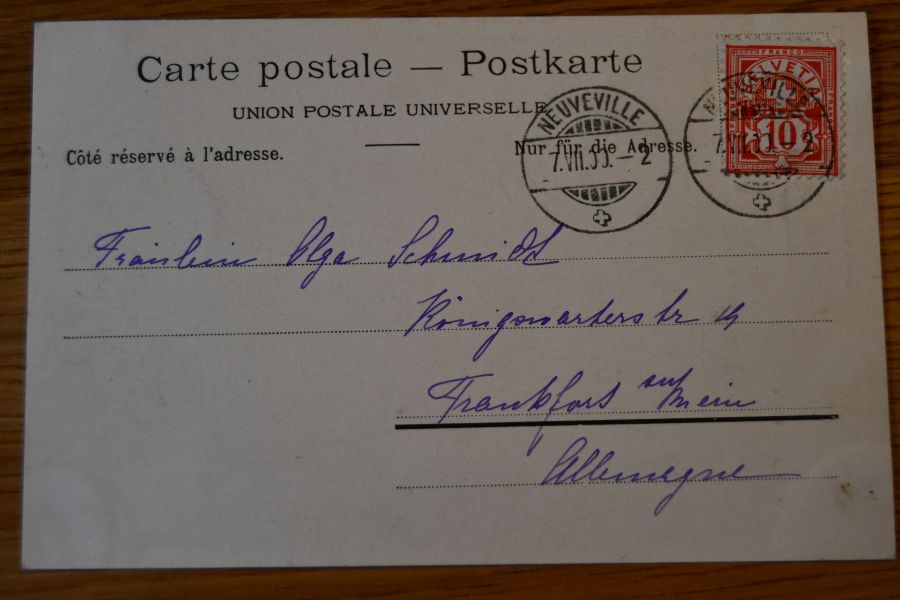 Carte postale — Postkarte
UNION POSTALE UNIVERSELLE
Côté réservé à l'adresse.
Nur für die Adresse.
NEUVEVILLE
7.VII. – 2
FRANCO
HELVETIA
10
NEUVEVILLE
7.VII. 2
Fräulein Olga Schmidt
Königswarterstr
Frankfort auf Mein
Allemagne